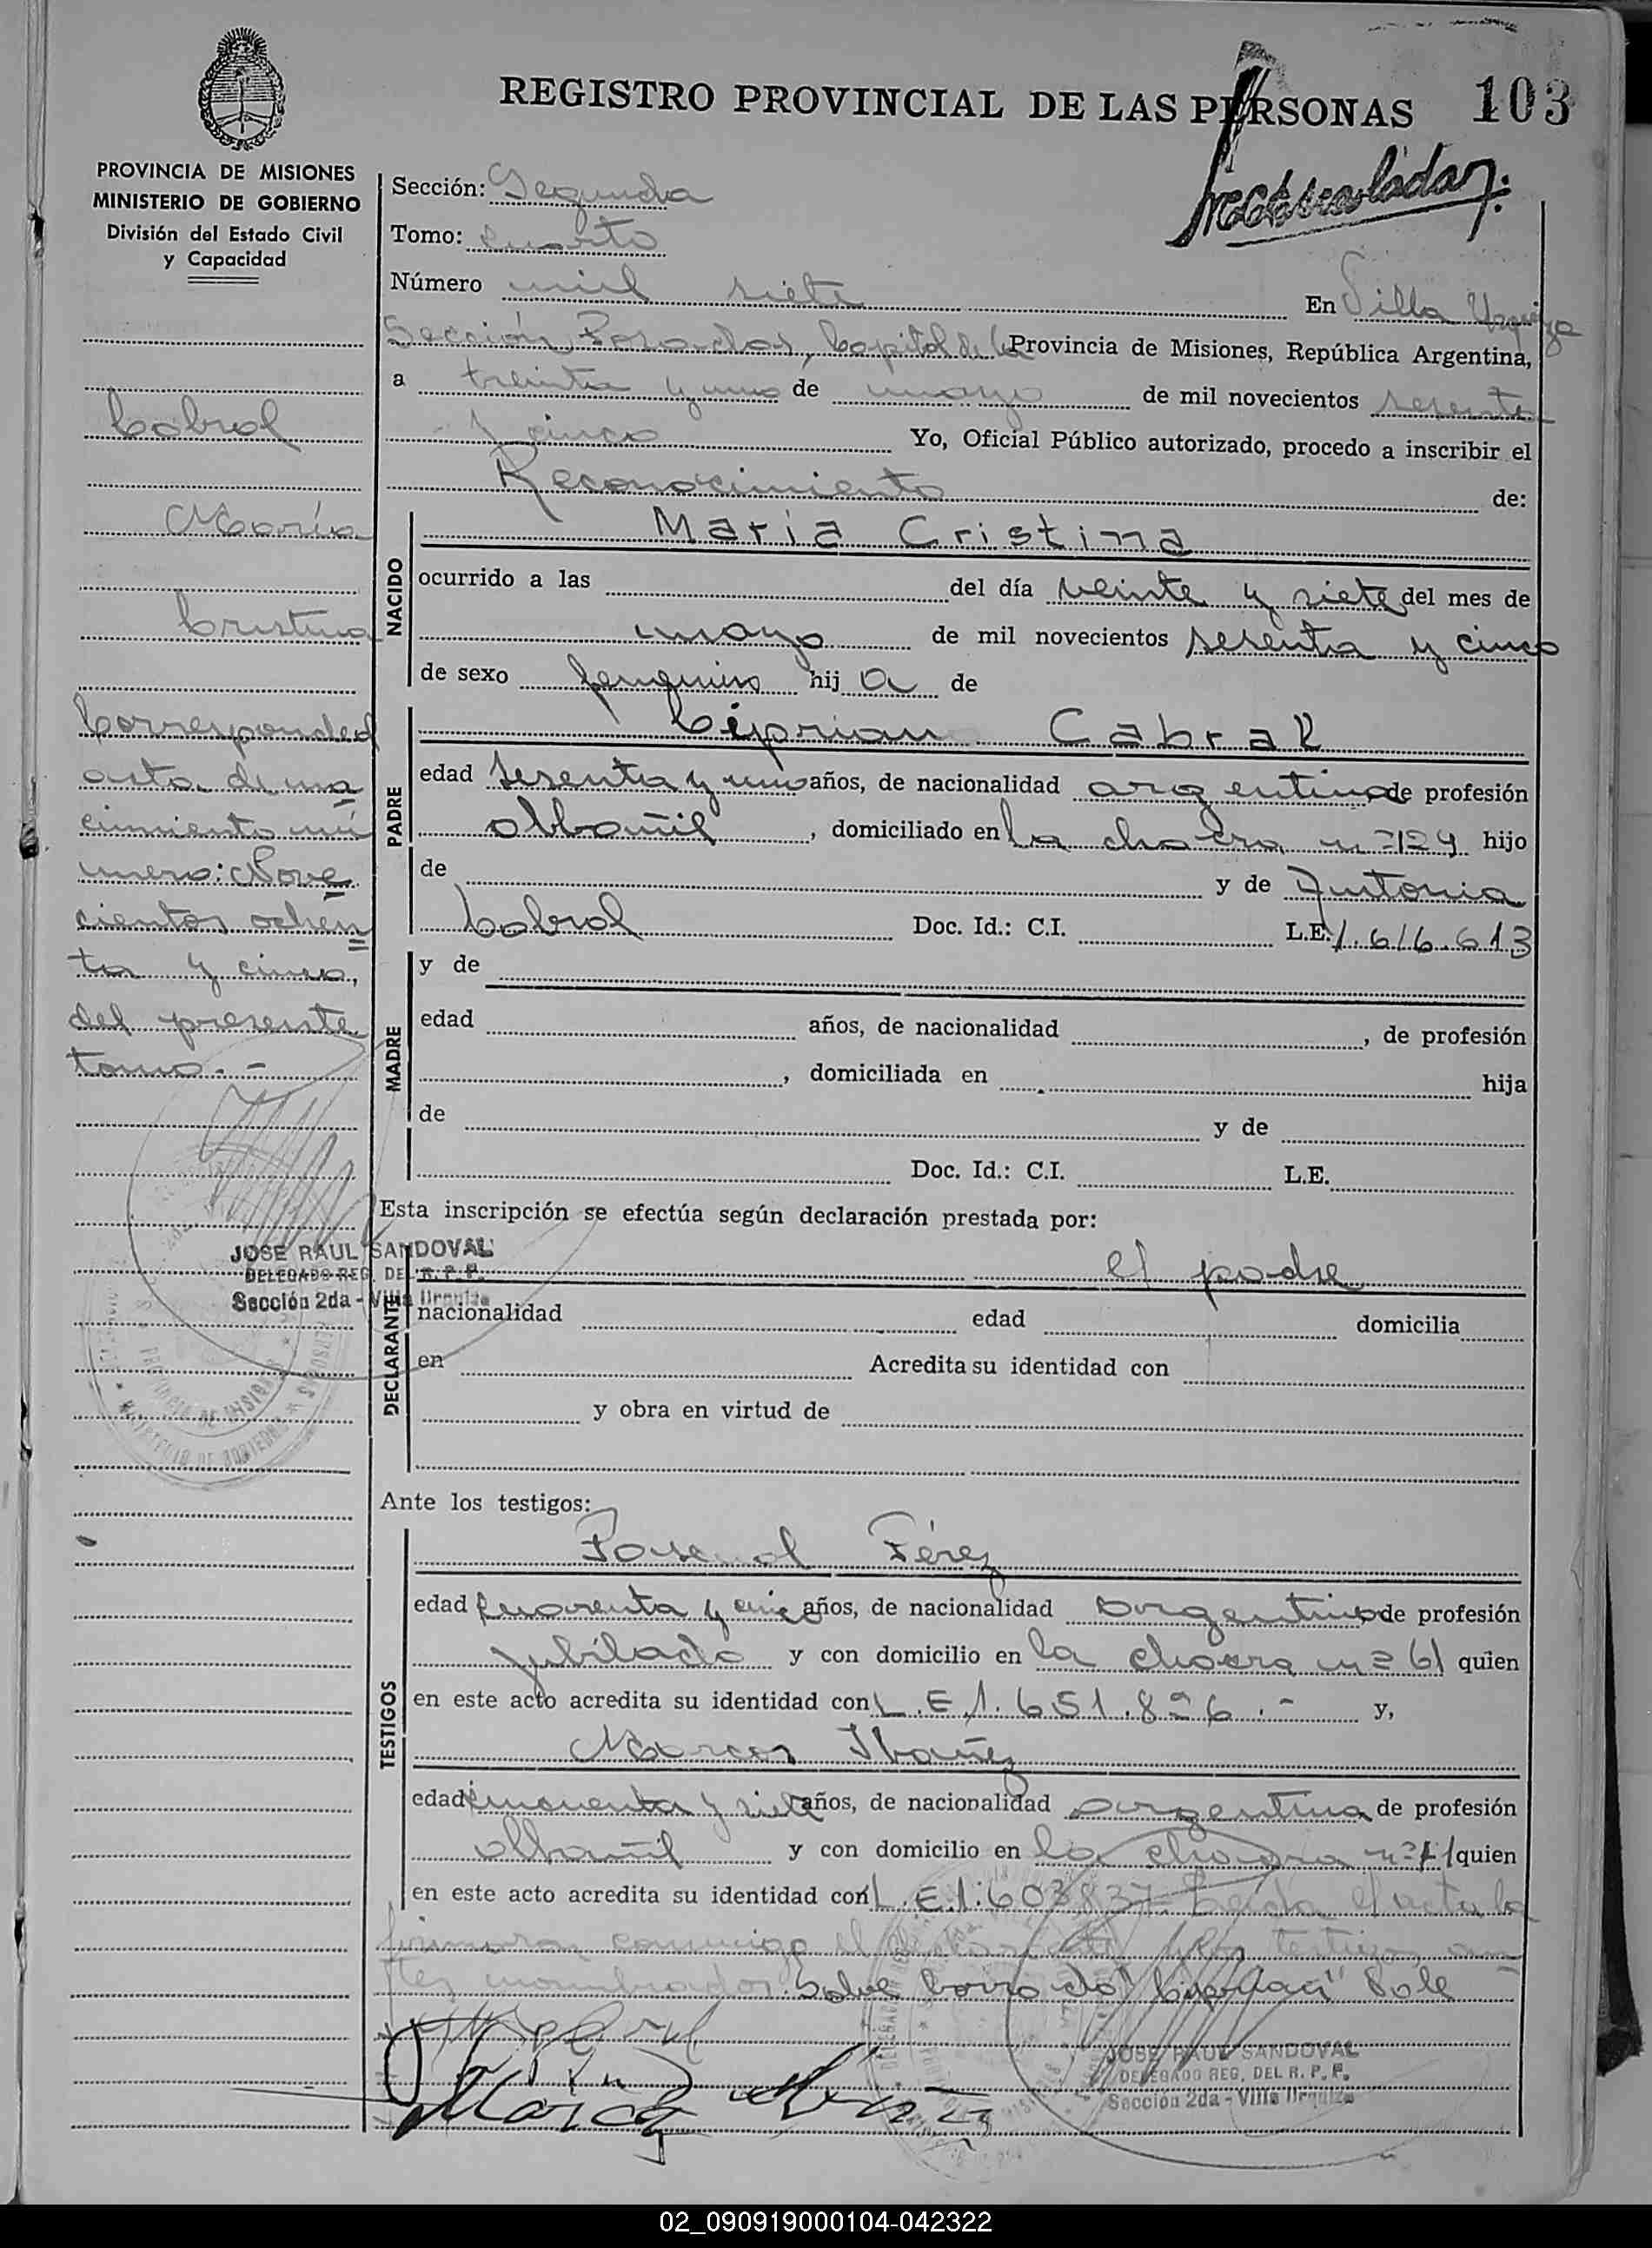 REGISTRO PROVINCIAL DE LAS PERSONAS 103
PROVINCIA DE MISIONES
MINISTERIO DE GOBIERNO
División del Estado Civil
y Capacidad
Cabral
María
Cristina
Corresponde al
acta de na
cimiento nú
mero: Nove
cientos ochen
ta y cinco,
del presente
tomo.-
JOSE RAUL SANDOVAL
DELEGADO REG. DEL R. P. P.
Sección 2da - Villa Urquiza
Sección: Segunda
Tomo: cuarto
Número mil siete En Villa Urquiza
Sección Posadas, Capital de la Provincia de Misiones, República Argentina,
a treinta y uno de mayo de mil novecientos sesenta
y cinco Yo, Oficial Público autorizado, procedo a inscribir el
Reconocimiento de:
NACIDO
Maria Cristina
ocurrido a las del día veinte y siete del mes de
mayo de mil novecientos sesenta y cinco
de sexo femenino hij a de
PADRE
Ciprian Cabral
edad sesenta y uno años, de nacionalidad argentina de profesión
albañil, domiciliado en la chacra nº 124 hijo
de y de Antonia
Cabral Doc. Id.: C.I. L.E. 1.616.613
MADRE
y de
edad años, de nacionalidad , de profesión
, domiciliada en hija
de y de
Doc. Id.: C.I. L.E.
Esta inscripción se efectúa según declaración prestada por:
DECLARANTE
el padre
nacionalidad edad domicilia
en Acredita su identidad con
y obra en virtud de
Ante los testigos:
TESTIGOS
Pascual Pérez
edad cuarenta y cinco años, de nacionalidad argentino de profesión
jubilado y con domicilio en la chacra nº 61 quien
en este acto acredita su identidad con L.E.1.651.896.- y,
Marcos Ibañez
edad cincuenta y siete años, de nacionalidad argentina de profesión
albañil y con domicilio en la chacra nº quien
en este acto acredita su identidad con L.E.1.603837. Leida el acta la
firmaron conmigo el declarante y los testigos an
tes nombrados. Sobre borrado "Ciprian" Vale
JOSE RAUL SANDOVAL
DELEGADO REG. DEL R. P. P.
Sección 2da - Villa Urquiza
02_090919000104-042322